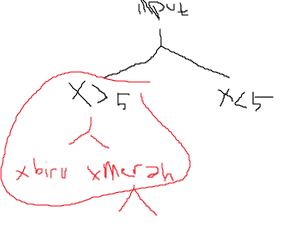 input
x > 5 x < 5
x biru x Merah